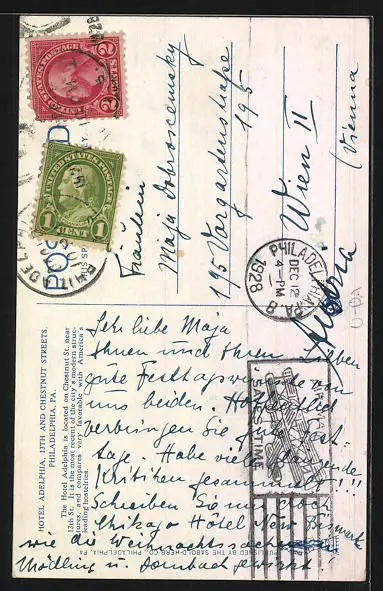 HOTEL ADELPHIA, 13TH AND CHESTNUT STREETS.
PHILADELPHIA, PA.
The Hotel Adelphia is located on Chestnut St. near
13th St. It is the most recent of the city's modern struc-
tures, and compares very favorable with America's
leading hostelries.
UNITED STATES POSTAGE
2 CENTS 2
UNITED STATES POSTAGE
1 CENT 1
PHILADELPHIA, PA. 8
DEC 12
4-PM
1928
Fräulein
Maja Dobroscemsky
195 Vorgartenstraße 195
Wien II
(Vienna
Austria
Sehr liebe Maja
Ihnen und Ihren lieben
gute Festtagswünsche von
uns beiden. Hoffentlich
verbringen Sie gute Fest-
tage. Habe viele
Kritiken gesammelt!!!
Schreiben Sie mir
Chikago Hotel New Bismark
wie die Weihnachtssachen in
Mödling u. Dornbach gewirkt
PUBLISHED BY THE SABOLD-HERB. CO., PHILADELPHIA, PA.